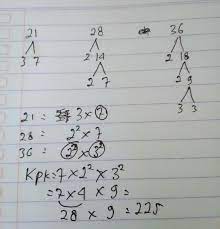 21 28 36
3 7 2 14 2 18
2 7 2 9
3 3
21 = 3 × 7
28 = 2² × 7
36 = 2² × 3²
Kpk = 7 × 2² × 3²
= 7 × 4 × 9 =
28 × 9 = 225